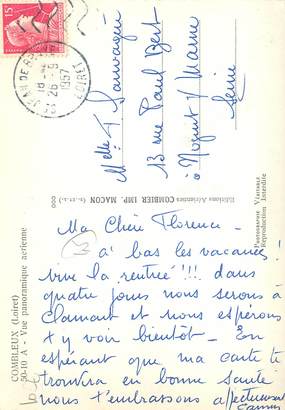 15
18
26-9
1957
LOIRET
Melle F. Sauvagin
13 rue Paul Bert
à Nogent s/ Marne
Seine
Editions Aériennes COMBIER IMP. MACON
PHOTOGRAPHIE VÉRITABLE
Reproduction Interdite
COMBLEUX (Loiret)
50-10 A - Vue panoramique aérienne
Ma Chère Florence -
à bas les vacances !
vive la rentrée !!! dans
quatre jours nous serons à
Clamart et nous espérons
t y voir bientôt - En
espérant que ma carte te
trouvera en bonne santé
nous t'embrassons affectueusement